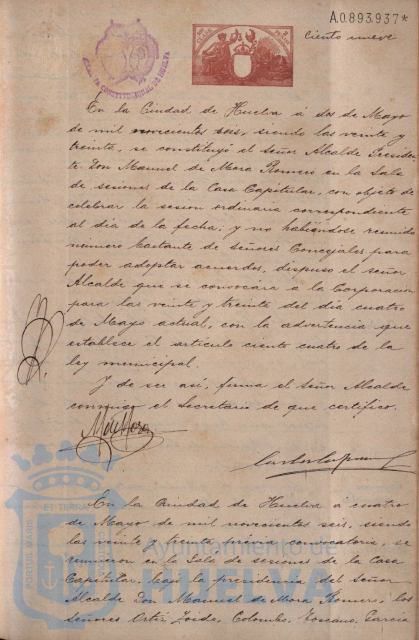 A.0.893.937*
Ciento nueve
En la Ciudad de Huelva á dos de Mayo
de mil novecientos seis, siendo las veinte y
treinta, se constituyó el Señor Alcalde Presiden-
te Don Manuel de Mora Romero en la Sala
de sesiones de la Casa Capitular, con objeto de
celebrar la sesion ordinaria correspondiente
al dia de la fecha, y no habiéndose reunido
número bastante de señores Concejales para
poder adoptar acuerdos, dispuso el señor
Alcalde que se convocára á la Corporacion
para las veinte y treinta del dia cuatro
de Mayo actual, con la advertencia que
establece el artículo ciento cuatro de la
ley municipal.
Y de ser asi, firma el Señor Alcalde
conmigo el Secretario de que certifico.
M de Mora
En la Ciudad de Huelva á cuatro
de Mayo de mil novecientos seis, siendo
las veinte y treinta prévia convocatoria, se
reunieron en la Sala de sesiones de la Casa
Capitular, bajo la presidencia del Señor
Alcalde Don Manuel de Mora Romero, los
Señores Coto, Colombo, Toscano, Garcia
Ayuntamiento de
HUELVA
PORTUS MARIS
ET TERRAE